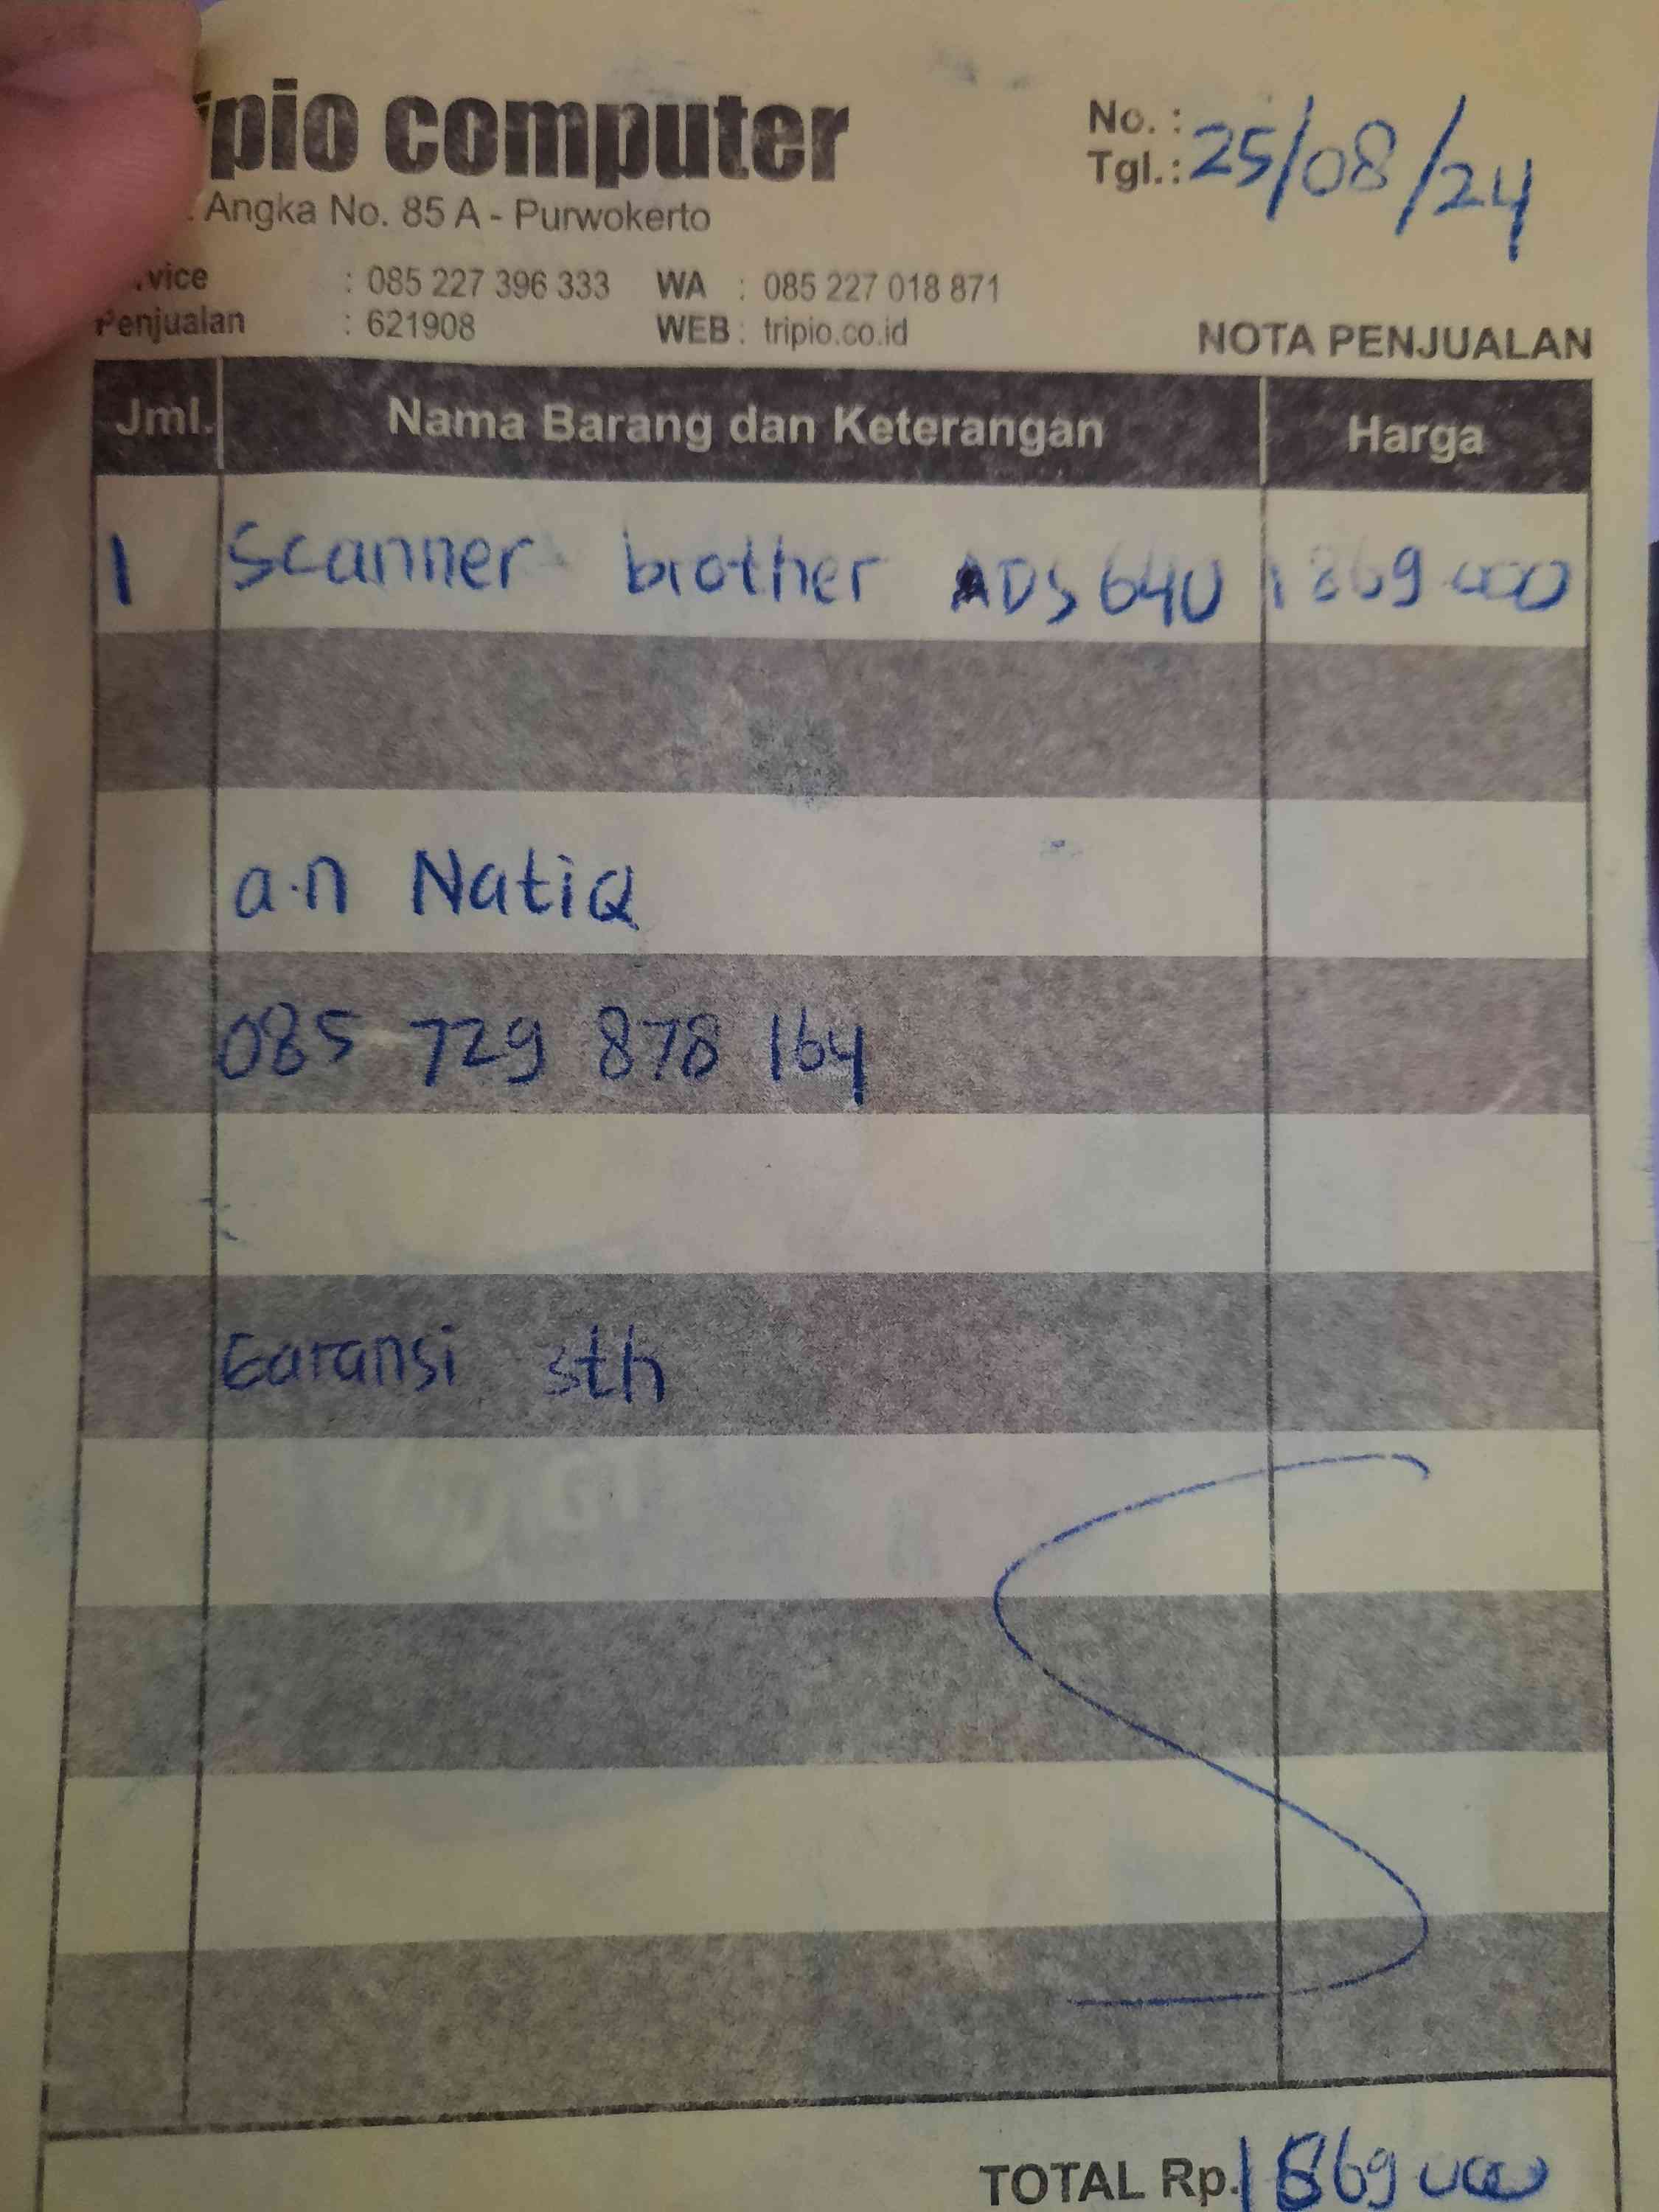 ipio computer
No. :
Tgl.: 25/08/24
. Angka No. 85 A - Purwokerto
rvice : 085 227 396 333 WA : 085 227 018 871
Penjualan : 621908 WEB : tripio.co.id
NOTA PENJUALAN
Jml. Nama Barang dan Keterangan Harga
1 Scanner brother ADS 640 1869 000
a.n NatiQ
085 729 878 164
Garansi 3th
TOTAL Rp. 1869 000